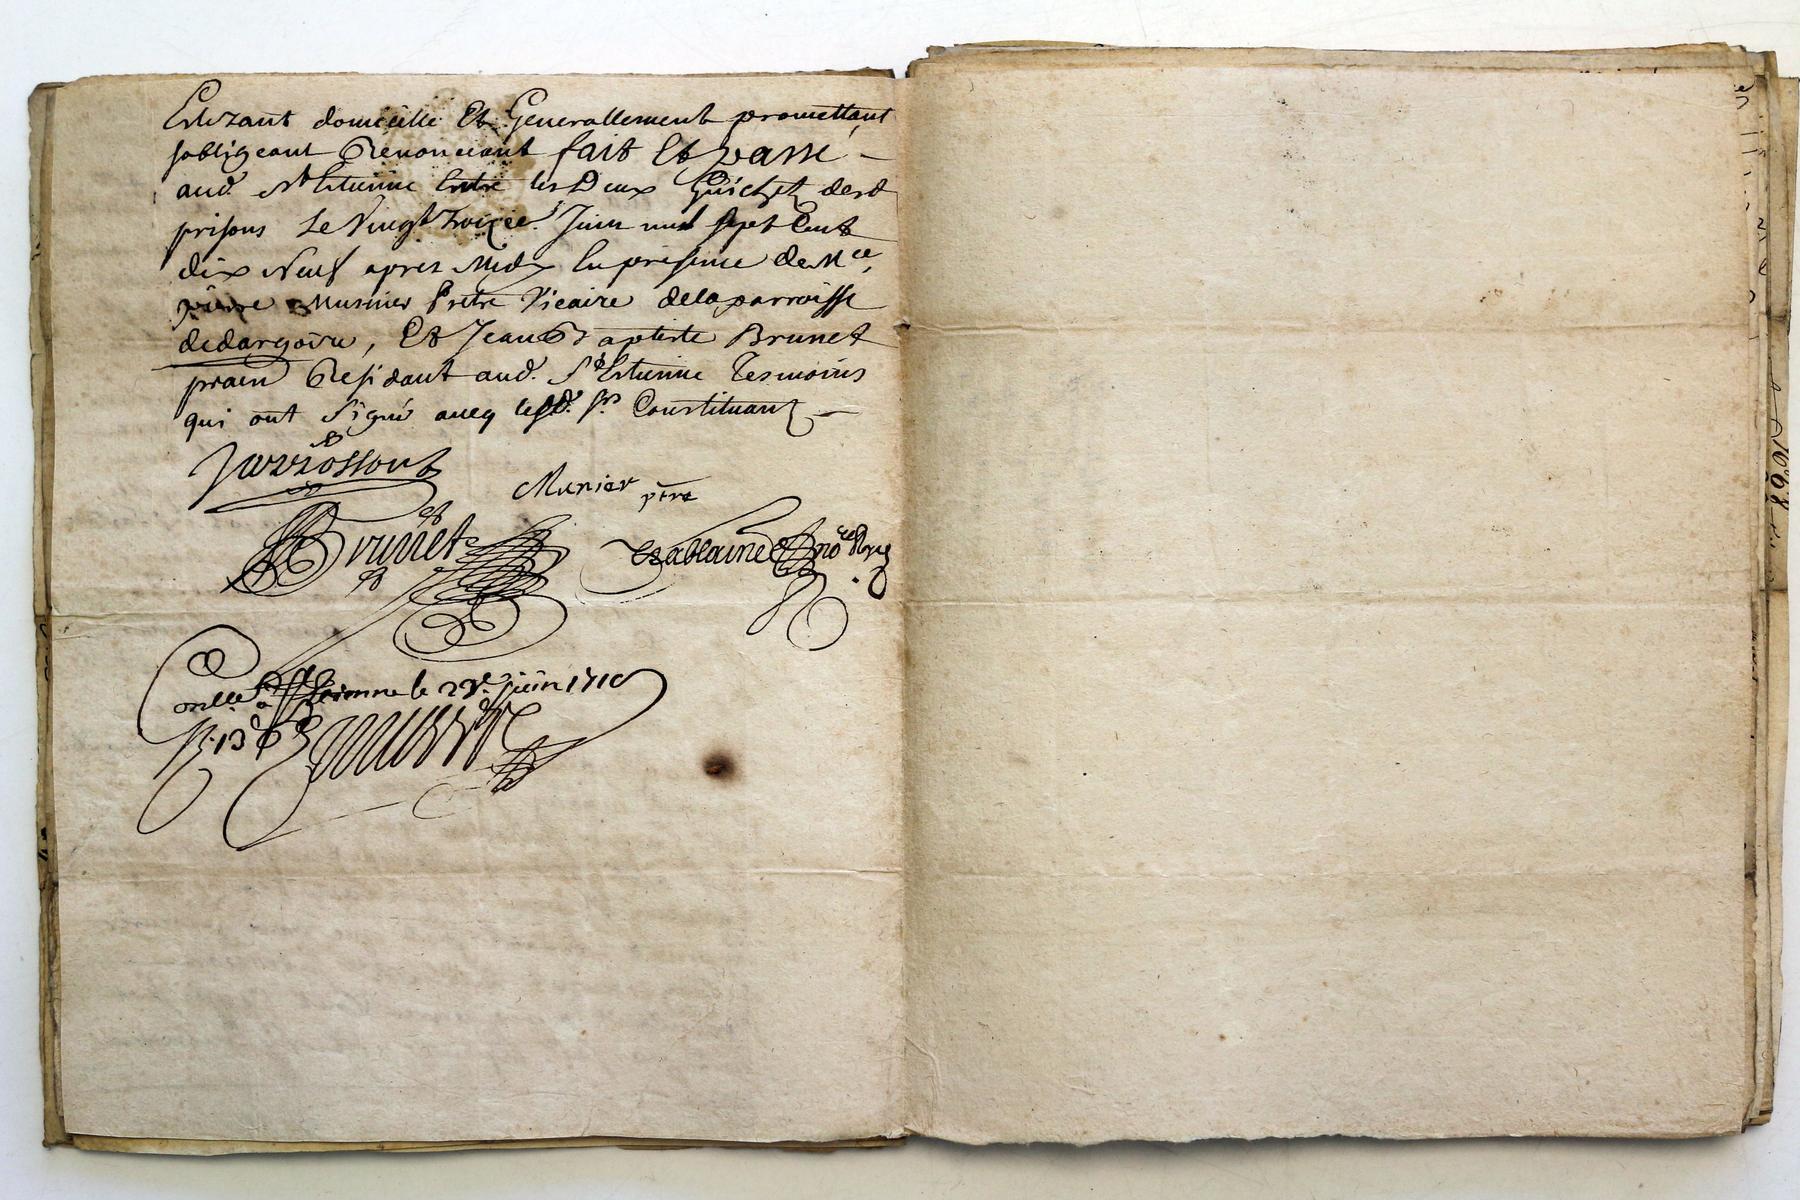 Elizant domicille Et Generallement promettant
sobligeant Renonciant fait Et passé
aud. St Estienne Entre les Deux Guichetz desd
prisons Le Vingt troize.e Juin mil sept Cent
dix Neuf apres Midy En presence de Mre
pierre Musnier Pretre Vicaire dela parroisse
dedargoire, Et Jean Baptiste Brunet
pratn Residant aud. St Estienne Tesmoins
qui ont Signé avecq lesd. srs Constituant
Munier ptre
Brunet
nore Royal
Conllé a St Estienne le 23e juin 1719
R. 13